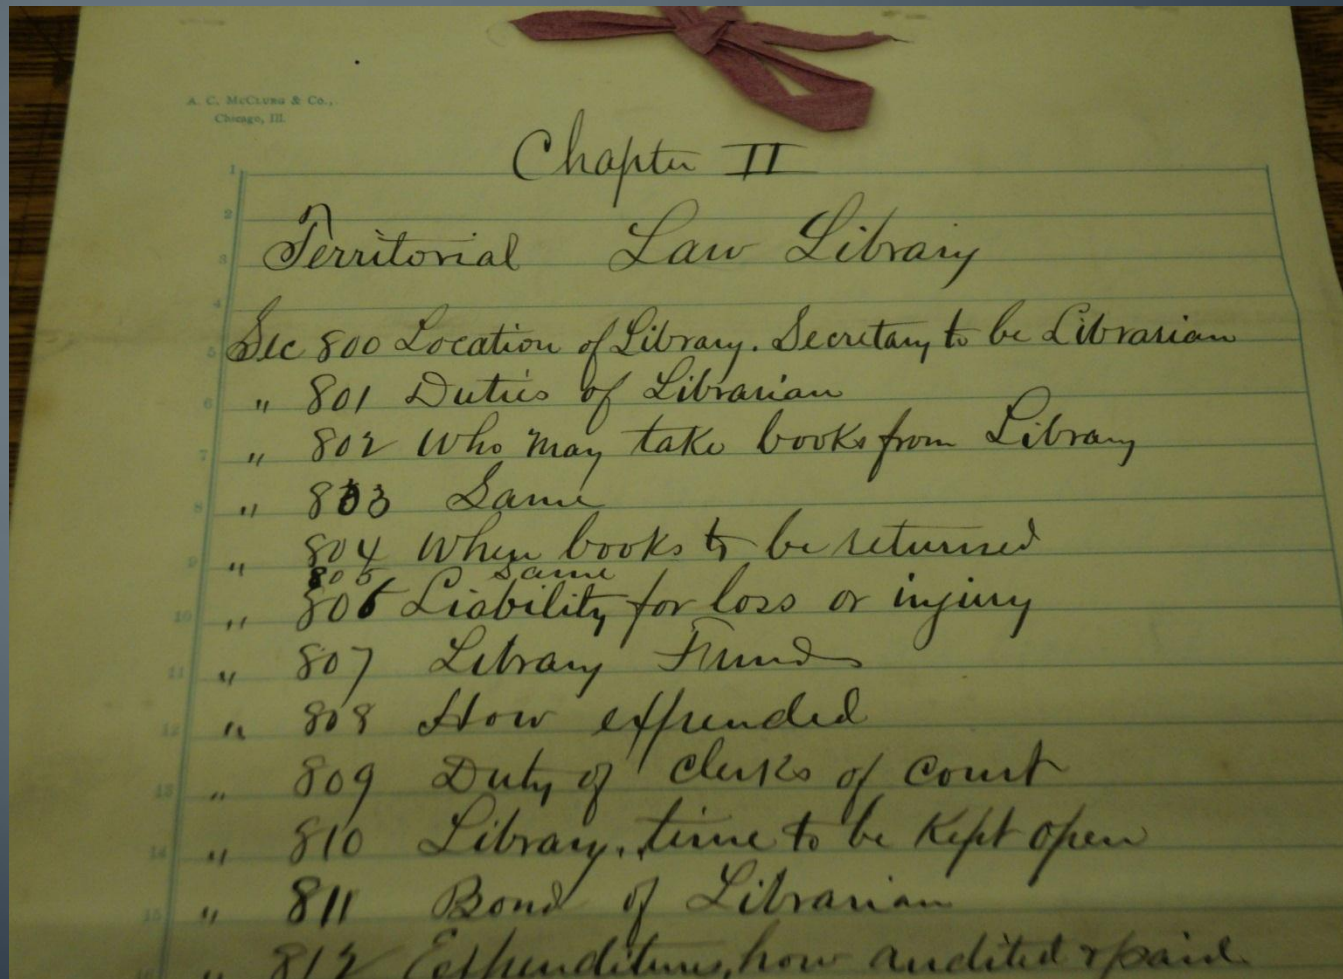 A. C. McClurg & Co.,
Chicago, Ill.
Chapter II
1
2
Territorial Law Library
3
4
Sec 800 Location of Library. Secretary to be Librarian
5
" 801 Duties of Librarian
6
" 802 Who may take books from Library
7
" 803 Same
8
" 804 When books to be returned
9
805 Same
" 806 Liability for loss or injury
10
" 807 Library Funds
11
" 808 How expended
12
" 809 Duty of clerks of court
13
" 810 Library, time to be kept open
14
" 811 Bond of Librarian
15
" 812 Expenditures, how audited & paid
16